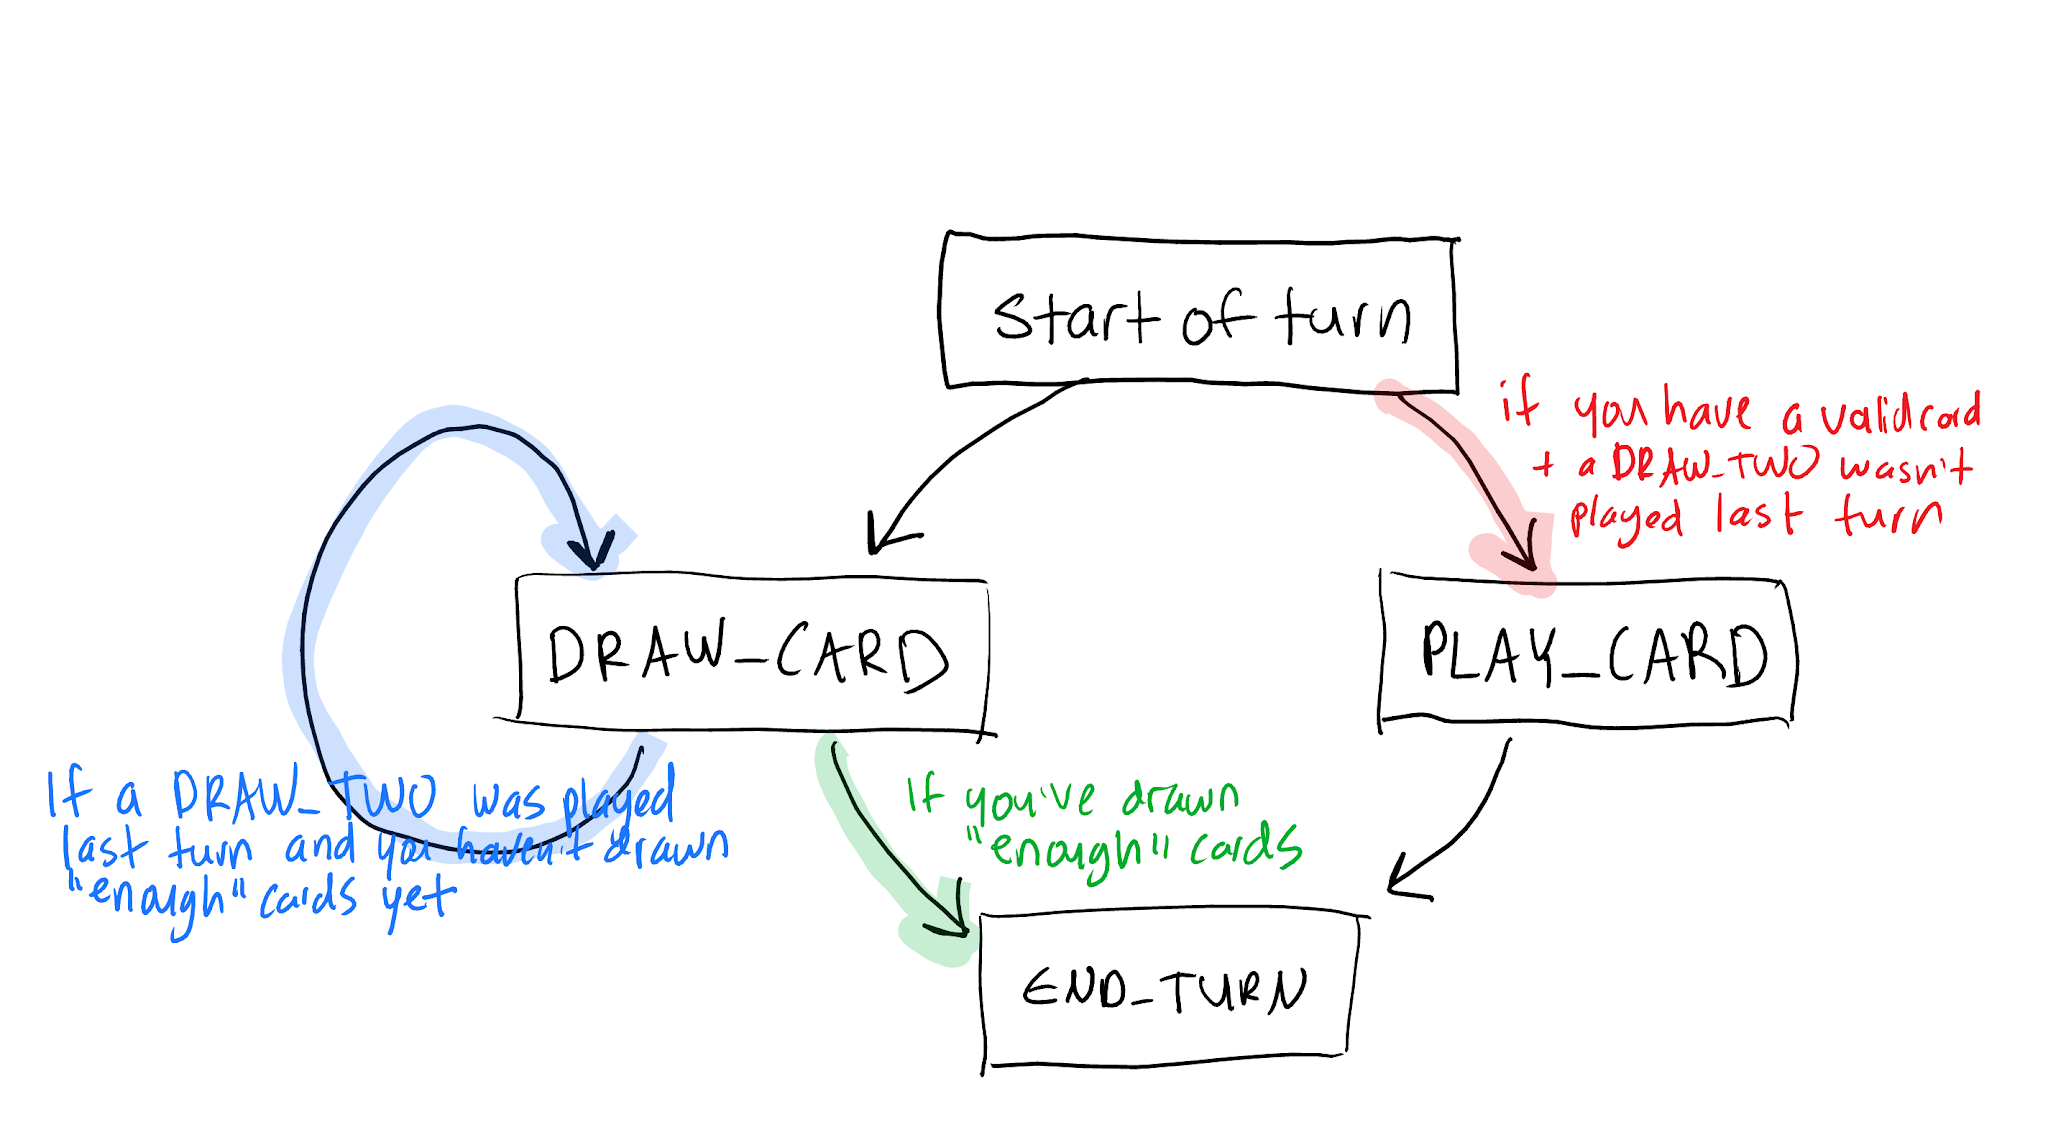 Start of turn
if you have a valid card
+ a DRAW_TWO wasn't
played last turn
DRAW_CARD
PLAY_CARD
If a DRAW_TWO was played
last turn and you haven't drawn
"enough" cards yet
If you've drawn
"enough" cards
END_TURN